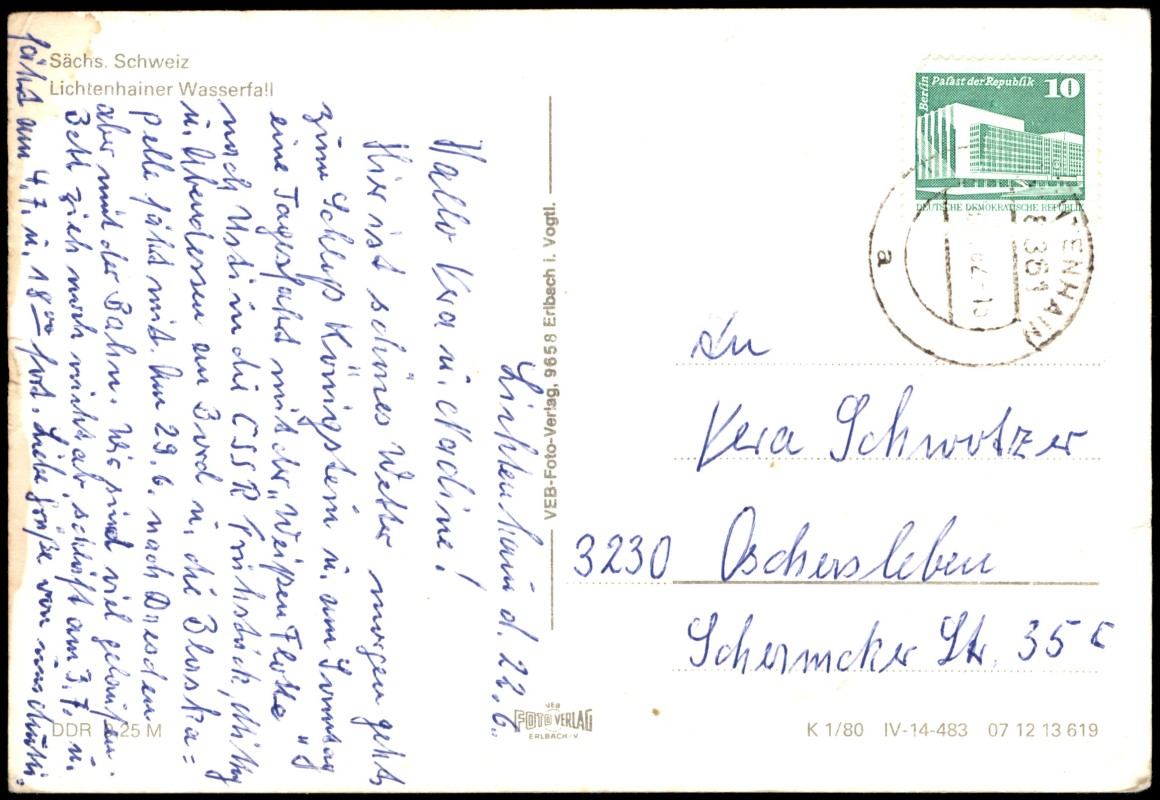 Sächs. Schweiz
Lichtenhainer Wasserfall
Lichtenhain d. 22.6.
Hallo Vera u. Nadine!
Hier ist schönes Wetter morgen gehts
zum Schloß Königstein u. am Sonntag
eine Tagesfahrt mit der „Weißen Flotte"
nach Usti in die CSSR Frühstück, Mittag
u. Abendessen an Bord u. die Blaska=
pelle fährt mit. Am 29.6. nach Dresden
aber mit der Bahn. Wir sind viel gelaufen.
Bett zieh noch nicht ab schläft am 3.7. u.
fährt am 4.7. u. 18 00 fort. Liebe Grüße von uns
VEB-Foto-Verlag, 9658 Erlbach i. Vogtl.
Berlin
Palast der Republik
10
DEUTSCHE DEMOKRATISCHE REPUBLIK
8361
a
An
Vera
3230 Oschersleben
Schermcker Str. 35 c
DDR 25 M
VEB
FOTO VERLAG
ERLBACH · V
K 1/80 IV-14-483 07 12 13 619